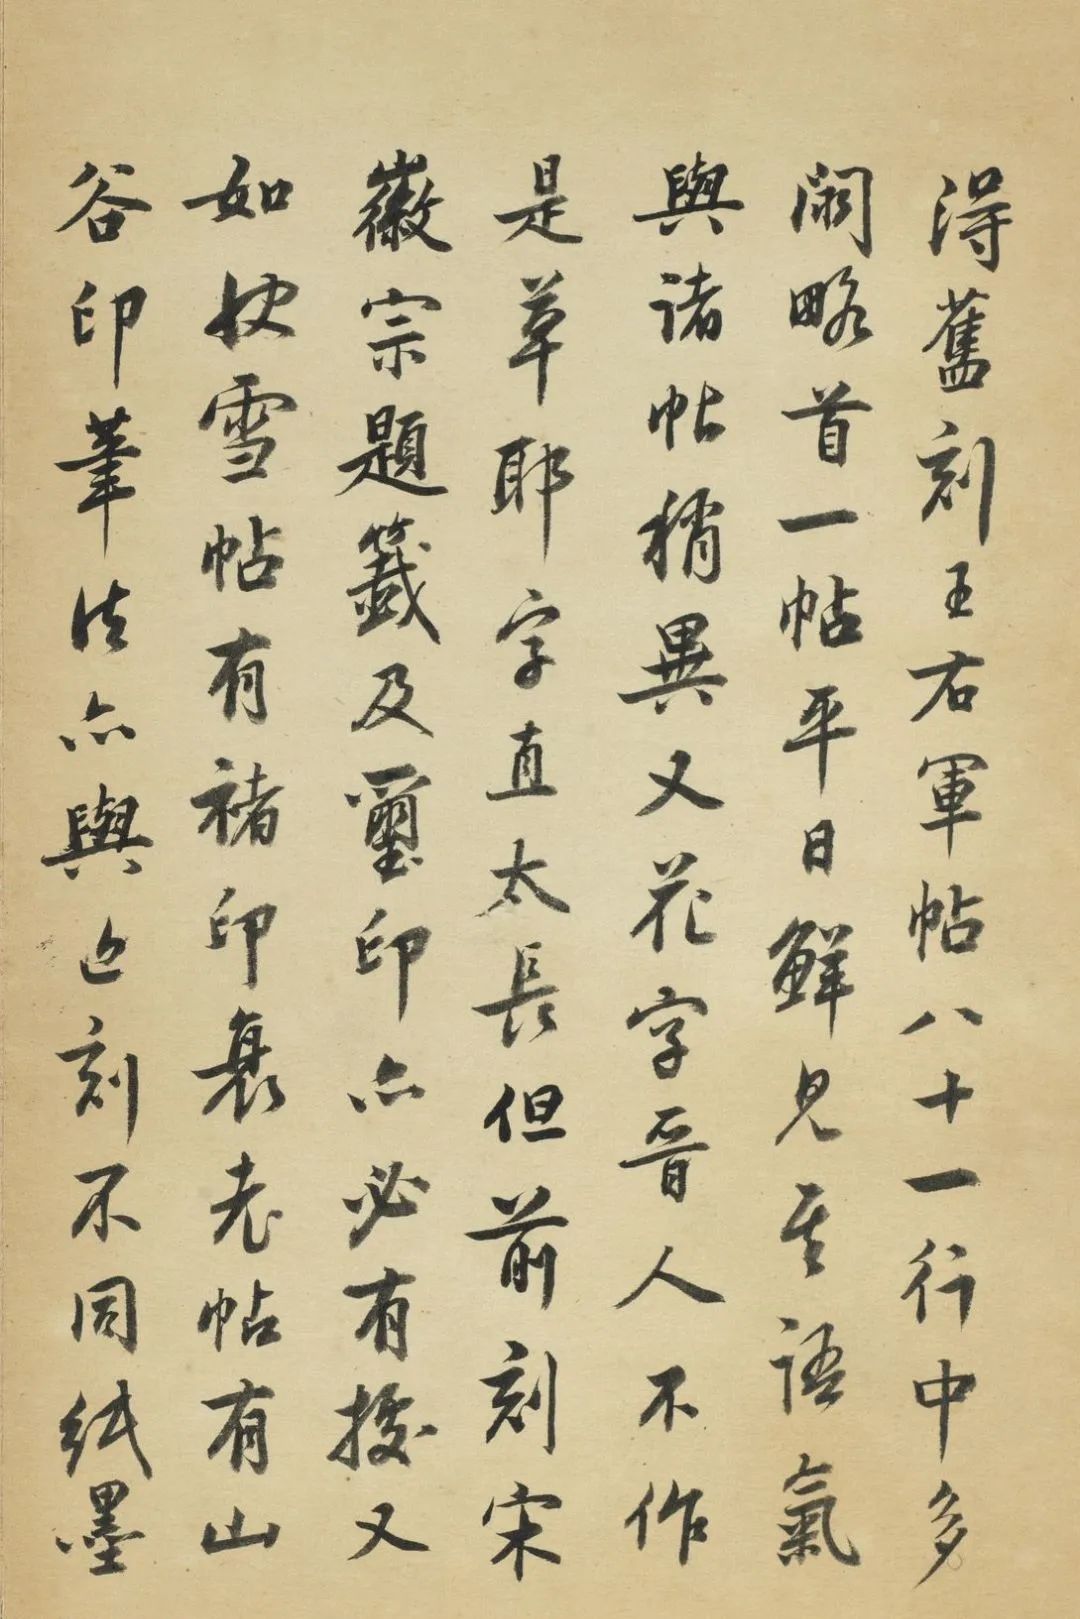 得舊刻王右軍帖八十一行中多
闕略首一帖平日鮮見其語氣
與諸帖稍異又花字晉人不作
是草耶字直太長但前刻宋
徽宗題籤及璽印亦必有據又
如快雪帖有褚印衰老帖有山
谷印筆法亦與近刻不同紙墨